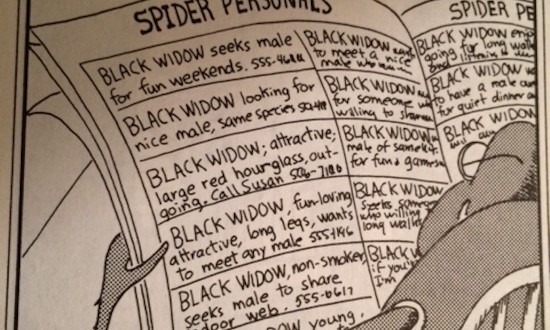 SPIDER PERSONALS
BLACK WIDOW seeks male
for fun weekends. 555-
BLACK WIDOW looking for
nice male, same species
BLACK WIDOW; attractive;
large red hourglass, out-
going. Call Susan
BLACK WIDOW, fun-loving
attractive, long legs, wants
to meet any male 555-
BLACK WIDOW, non-smoker,
seeks male to share
door web. 555-0617
DOW young,
BLACK WIDOW
to meet a nice
male who
BLACK WIDOW
for someone
willing to
BLACK WIDOW
male of same
for fun & games
BLACK WIDOW
seeks
who willing
long walks
BLACK
if you'
I'm
SPIDER PE
BLACK WIDOW
going for long
BLACK WIDOW
to have a male
for quiet dinner
BLACK WIDOW